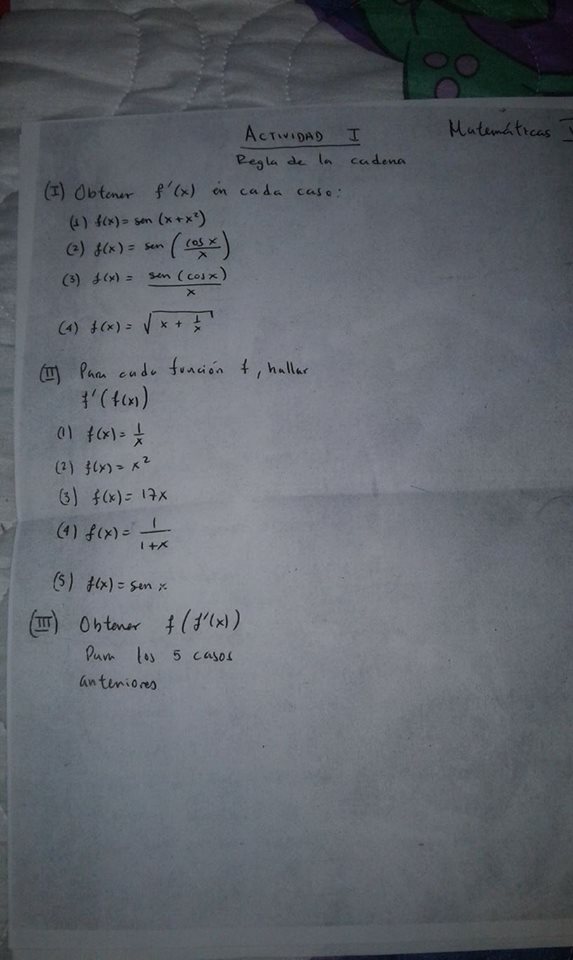 ACTIVIDAD I
Matemáticas
Regla de la cadena
(I) Obtener f'(x) en cada caso:
(1) f(x) = sen (x+x²)
(2) f(x) = sen (cos x / x)
(3) f(x) = sen (cos x) / x
(4) f(x) = √(x + 1/x)
(II) Para cada función f, hallar
f'(f(x))
(1) f(x) = 1/x
(2) f(x) = x²
(3) f(x) = 17x
(4) f(x) = 1/(1+x)
(5) f(x) = sen x
(III) Obtener f(f'(x))
Para los 5 casos
anteriores